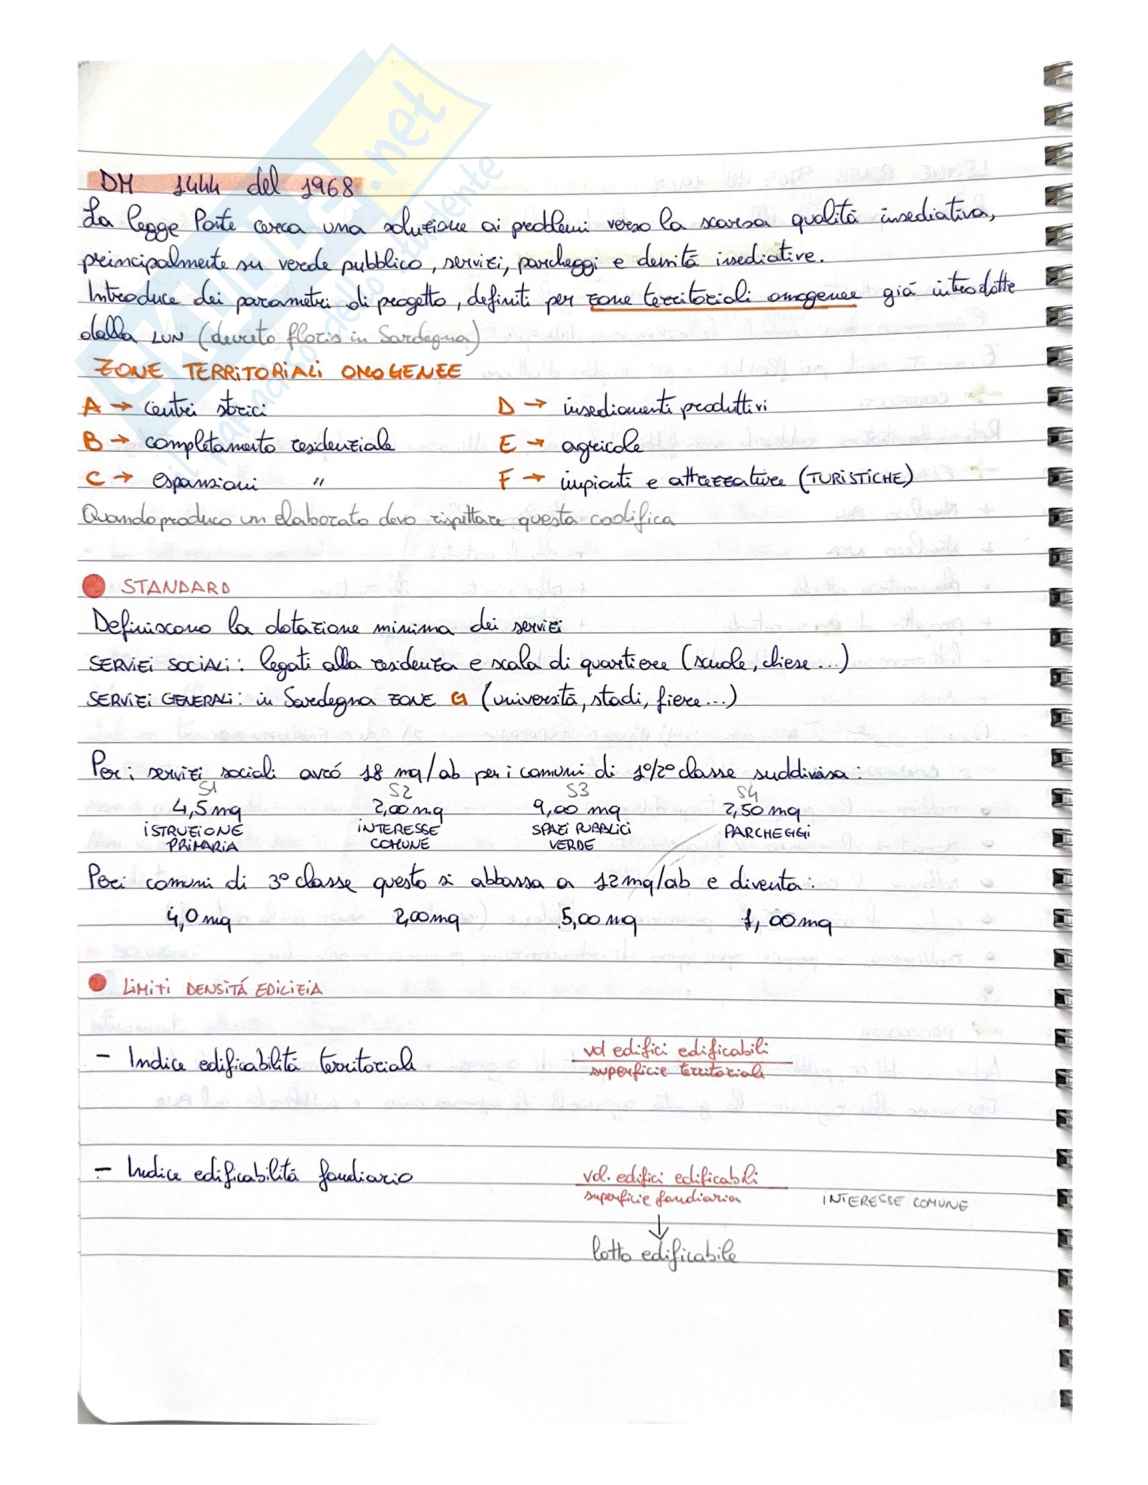 DM 1444 del 1968
La legge Ponte cerca una soluzione ai problemi verso la scarsa qualità insediativa,
principalmente su verde pubblico, servizi, parcheggi e densità insediative.
Introduce dei parametri di progetto, definiti per zone territoriali omogenee già introdotte
dalla LUN (decreto floris in Sardegna)
ZONE TERRITORIALI OMOGENEE
A → centri storici D → insediamenti produttivi
B → completamento residenziale E → agricole
C → espansioni " F → impianti e attrezzature (TURISTICHE)
Quando produco un elaborato devo rispettare questa codifica
STANDARD
Definiscono la dotazione minima dei servizi
SERVIZI SOCIALI: legati alla residenza e scala di quartiere (scuole, chiese...)
SERVIZI GENERALI: in Sardegna ZONE G (università, stadi, fiere...)
Per i servizi sociali avrò 18 mq/ab per i comuni di 1º/2º classe suddivisa:
S1 S2 S3 S4
4,5 mq 2,00 mq 9,00 mq 2,50 mq
ISTRUZIONE INTERESSE SPAZI PUBBLICI PARCHEGGI
PRIMARIA COMUNE VERDE
Per i comuni di 3º classe questo si abbassa a 12 mq/ab e diventa:
4,0 mq 2,00 mq 5,00 mq 1,00 mq
LIMITI DENSITÁ EDILIZIA
- Indice edificabilità territoriale vol edifici edificabili
superficie territoriale
- Indice edificabilità fondiario vol. edifici edificabili
superficie fondiaria INTERESSE COMUNE
↓
lotto edificabile